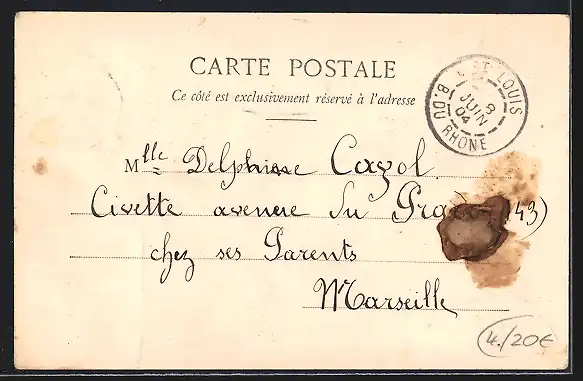 CARTE POSTALE
Ce côté est exclusivement réservé à l'adresse
ST LOUIS
8
JUIN
04
B. DU RHÔNE
Mlle Delphine Cayol
Civette avenue du Prado (43)
chez ses Parents
Marseille
4./20€